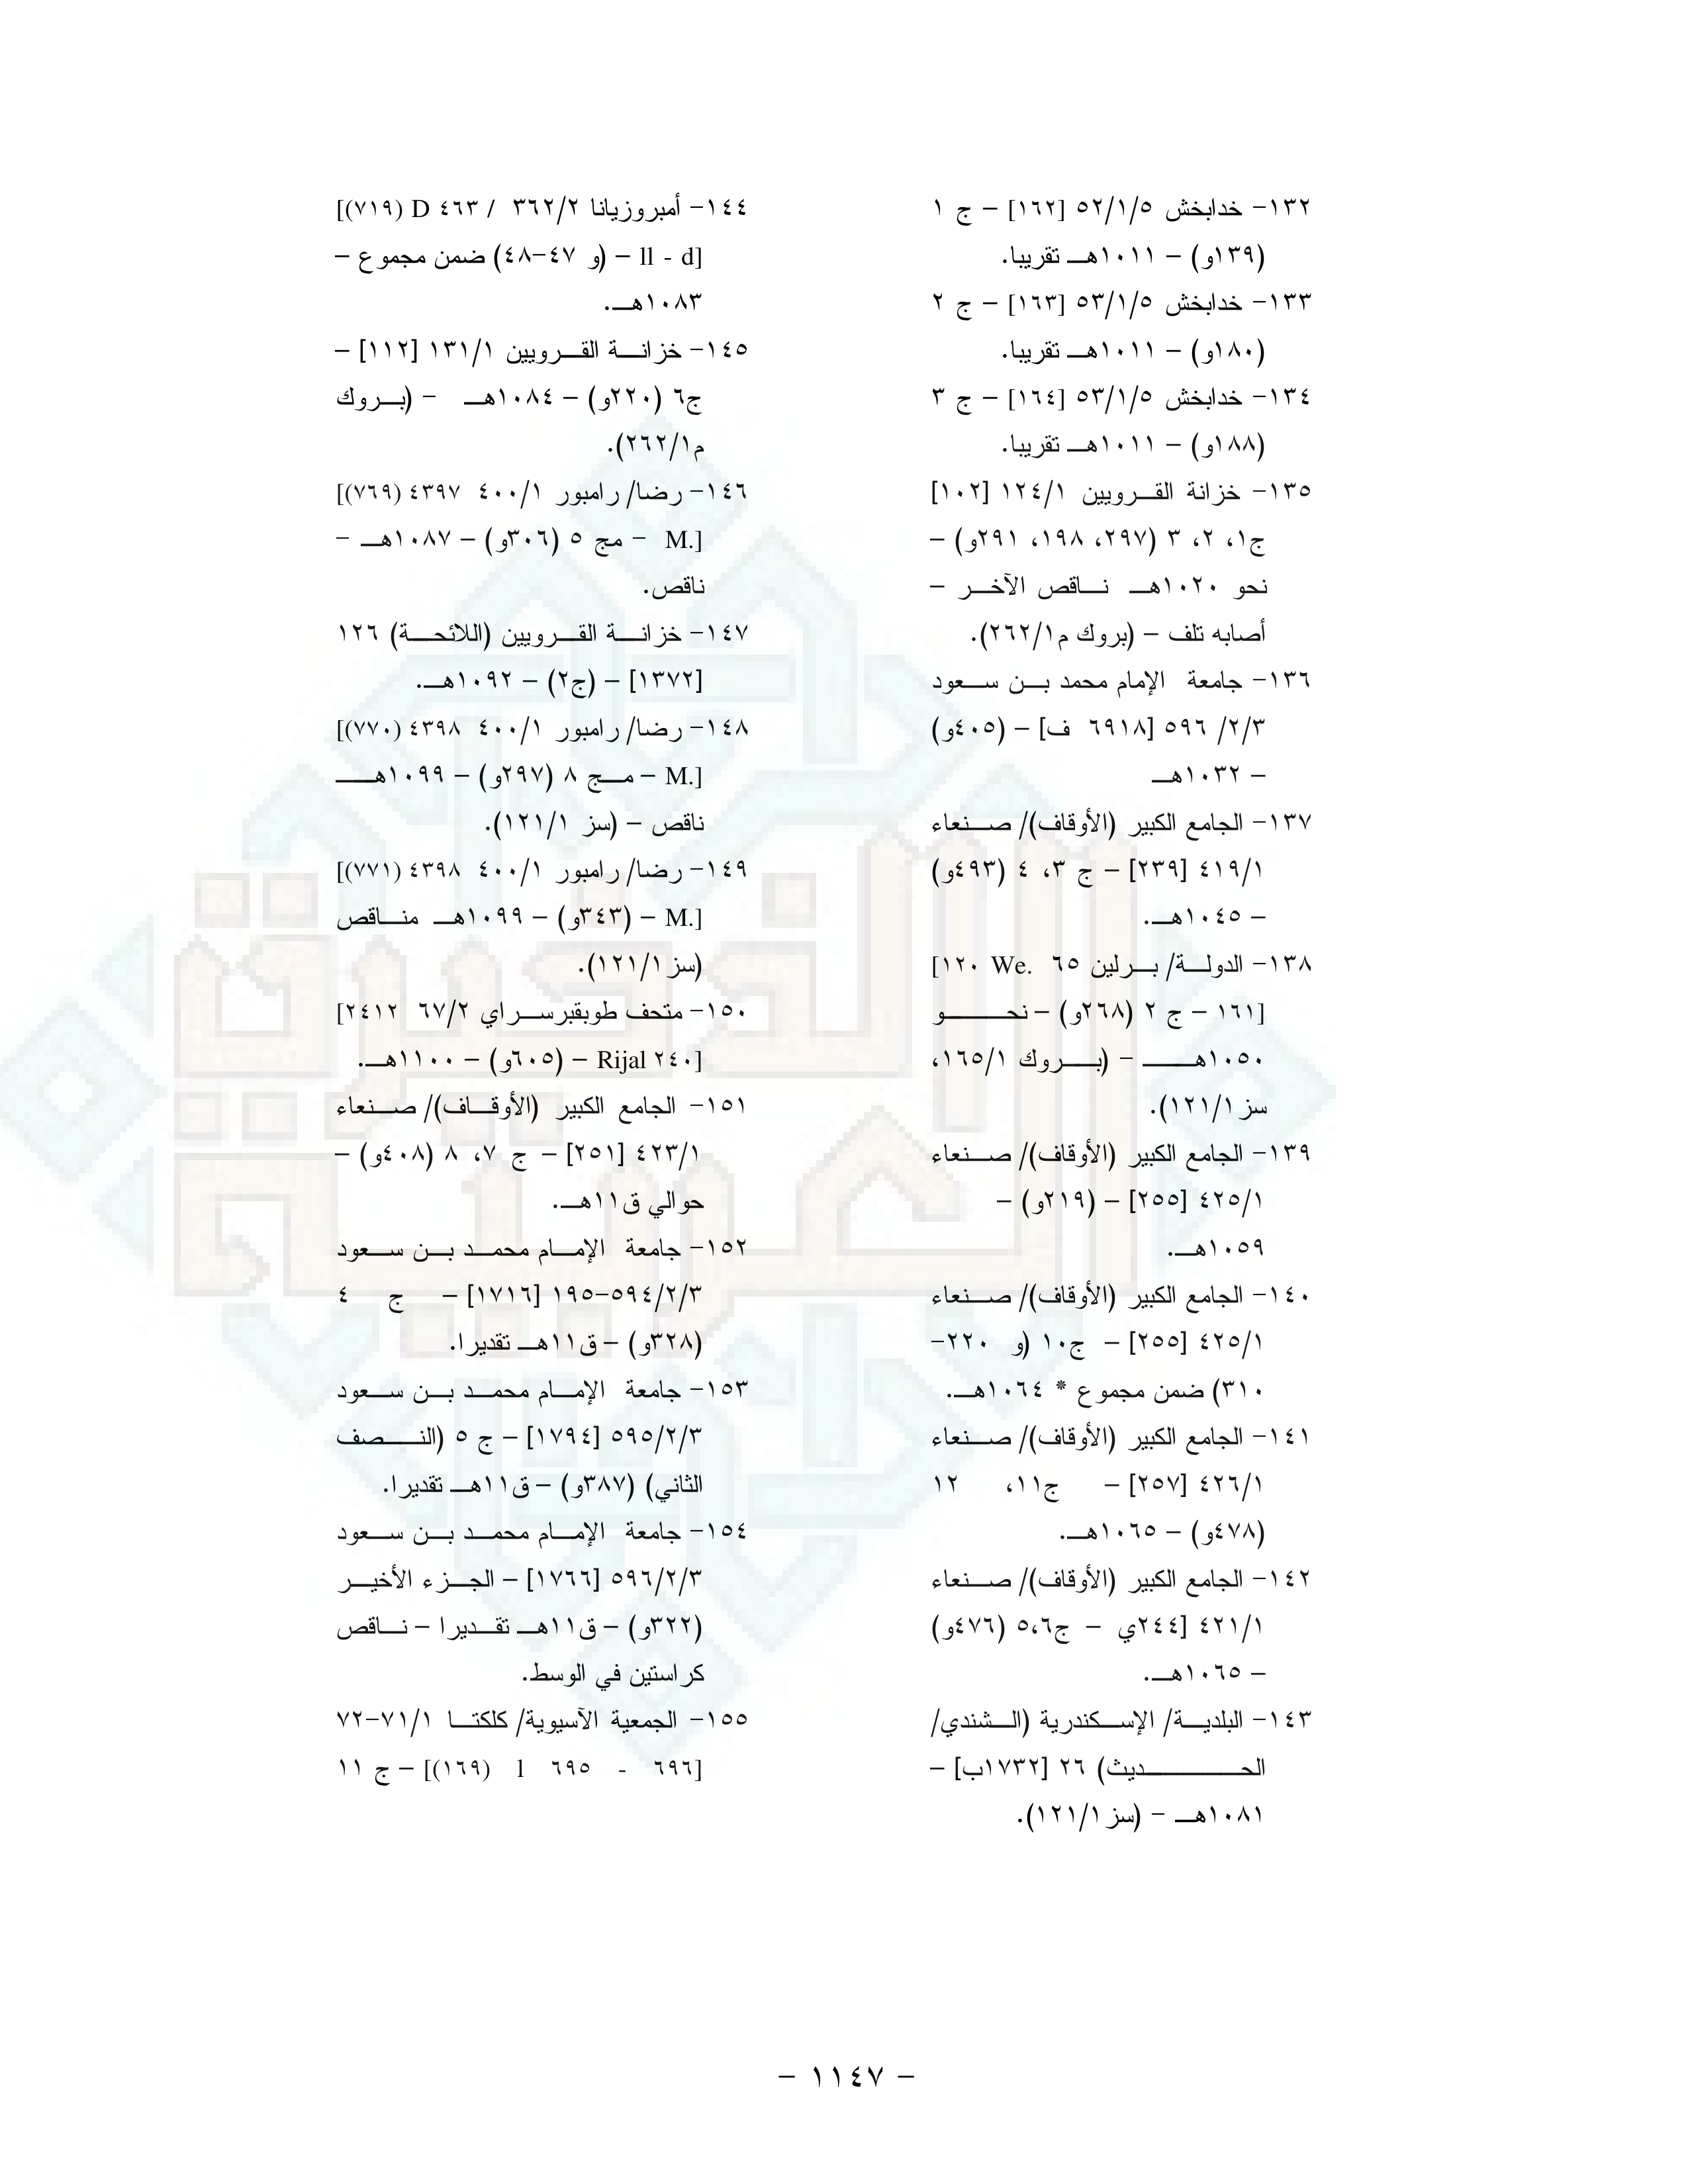 ١٣٢- خدابخش ٥٢/١/٥ [١٦٢] – ج ١
(١٣٩و) – ١٠١١هـ تقريبا.
١٣٣- خدابخش ٥٣/١/٥ [١٦٣] – ج ٢
(١٨٠و) – ١٠١١هـ تقريبا.
١٣٤- خدابخش ٥٣/١/٥ [١٦٤] – ج ٣
(١٨٨و) – ١٠١١هـ تقريبا.
١٣٥- خزانة القرويين ١٢٤/١ [١٠٢]
ج١، ٢، ٣ (٢٩٧، ١٩٨، ٢٩١و) –
نحو ١٠٢٠هـ ناقص الآخر –
أصابه تلف – (بروك م٢٦٢/١).
١٣٦- جامعة الإمام محمد بن سعود
٢/٣/ ٥٩٦ [٦٩١٨ ف] – (٤٠٥و)
– ١٠٣٢هـ
١٣٧- الجامع الكبير (الأوقاف)/ صنعاء
٤١٩/١ [٢٣٩] – ج ٣، ٤ (٤٩٣و)
– ١٠٤٥هـ.
١٣٨- الدولة/ برلين ٦٥ .We ١٢٠]
[١٦١ – ج ٢ (٢٦٨و) – نحو
١٠٥٠هـ – (بروك ١٦٥/١،
سز١٢١/١).
١٣٩- الجامع الكبير (الأوقاف)/ صنعاء
٤٢٥/١ [٢٥٥] – (٢١٩و) –
١٠٥٩هـ.
١٤٠- الجامع الكبير (الأوقاف)/ صنعاء
٤٢٥/١ [٢٥٥] – ج١٠ (و ٢٢٠-
٣١٠) ضمن مجموع * ١٠٦٤هـ.
١٤١- الجامع الكبير (الأوقاف)/ صنعاء
٤٢٦/١ [٢٥٧] – ج١١، ١٢
(٤٧٨و) – ١٠٦٥هـ.
١٤٢- الجامع الكبير (الأوقاف)/ صنعاء
٤٢١/١ [٢٤٤ي – ج٥،٦ (٤٧٦و)
– ١٠٦٥هـ.
١٤٣- البلدية/ الإسكندرية (الشندي/
الحديث) ٢٦ [١٧٣٢ب] –
١٠٨١هـ – (سز١٢١/١).
١٤٤- أمبروزيانا ٣٦٢/٢ / ٤٦٣ D (٧١٩)]
[ll - d – (و ٤٧-٤٨) ضمن مجموع –
١٠٨٣هـ.
١٤٥- خزانة القرويين ١٣١/١ [١١٢] –
ج٦ (٢٢٠و) – ١٠٨٤هـ – (بروك
م٢٦٢/١).
١٤٦- رضا/ رامبور ٤٠٠/١ ٤٣٩٧ (٧٦٩)]
[.M – مج ٥ (٣٠٦و) – ١٠٨٧هـ –
ناقص.
١٤٧- خزانة القرويين (اللائحة) ١٢٦
[١٣٧٢] – (ج٢) – ١٠٩٢هـ.
١٤٨- رضا/ رامبور ٤٠٠/١ ٤٣٩٨ (٧٧٠)]
[.M – مج ٨ (٢٩٧و) – ١٠٩٩هـ
ناقص – (سز ١٢١/١).
١٤٩- رضا/ رامبور ٤٠٠/١ ٤٣٩٨ (٧٧١)]
[.M – (٣٤٣و) – ١٠٩٩هـ مناقص
(سز١٢١/١).
١٥٠- متحف طوبقبرسراي ٦٧/٢ ٢٤١٢]
[٢٤٠ Rijal – (٦٠٥و) – ١١٠٠هـ.
١٥١- الجامع الكبير (الأوقاف)/ صنعاء
٤٢٣/١ [٢٥١] – ج ٧، ٨ (٤٠٨و) –
حوالي ق١١هـ.
١٥٢- جامعة الإمام محمد بن سعود
٥٩٤/٢/٣-١٩٥ [١٧١٦] – ج ٤
(٣٢٨و) – ق١١هـ تقديرا.
١٥٣- جامعة الإمام محمد بن سعود
٥٩٥/٢/٣ [١٧٩٤] – ج ٥ (النصف
الثاني) (٣٨٧و) – ق١١هـ تقديرا.
١٥٤- جامعة الإمام محمد بن سعود
٥٩٦/٢/٣ [١٧٦٦] – الجزء الأخير
(٣٢٢و) – ق١١هـ تقديرا – ناقص
كراستين في الوسط.
١٥٥- الجمعية الآسيوية/ كلكتا ٧١/١-٧٢
[٦٩٦ - ٦٩٥ l (١٦٩)] – ج ١١
– ١١٤٧ –
الذخيرة
العربية